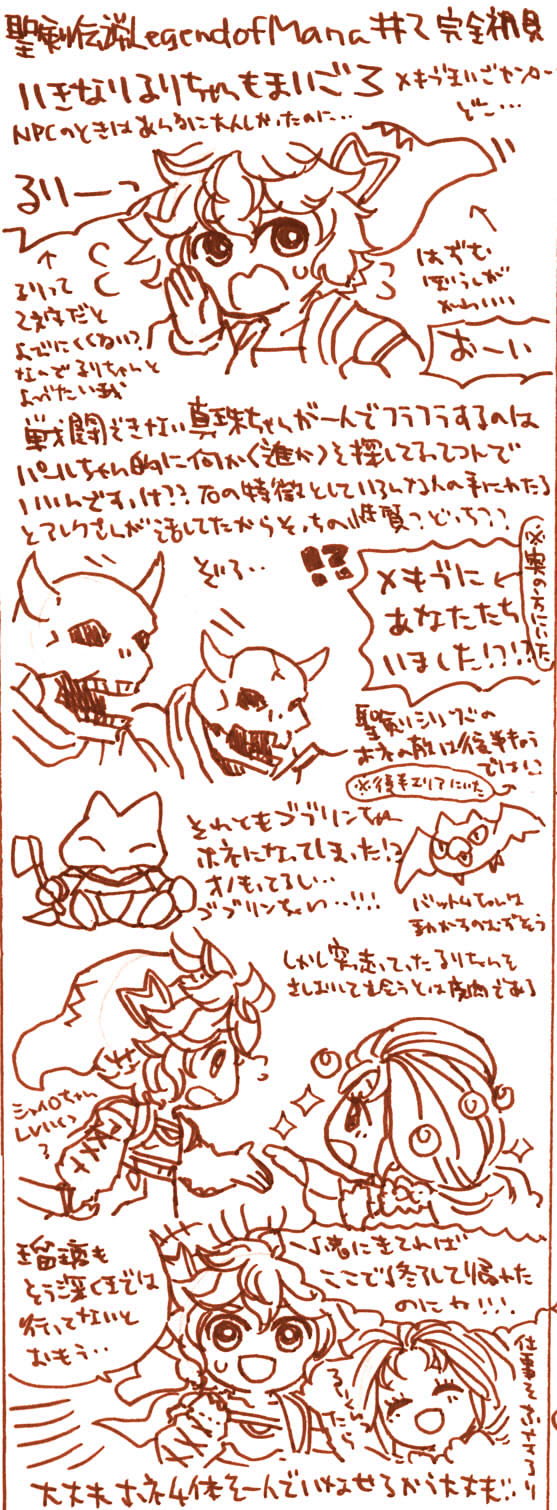 聖剣伝説LegendofMana#2完全初見
いきなりるりちゃんもまいごろ
メキブまいごセンター
どこ…
NPCのときはあららにたんしかったのに…
るりーっ
↑
るりって
2文字だと
よびにくくない?
なんでるりちゃんと
よびたい我
はずむ
ぼうしが
かわいい
おーい
戦闘できない真珠ちゃんが一人でフラフラするのは
パールちゃん的に何か(誰か)を探してるってコトで
いいんですっけ??石の特徴としていろんな人の手にわたる
とアレクさんが話してたからそっちの性質?どっち??
ぞろ…
メキブに
あなたたち
いました!?!?
※実のおくにいた
聖剣シリーズの
ホネの敵は後半きう
では!?
※後半エリアにいた
それともゴブリンちゃん
ホネになってしまった!?
オノもってるし…
ゴブリンちゃん…!!!
バットムちゃんは
動かすのむずそう
しかし突走っていったるりちゃんを
さしおいて出会うとは皮肉である
シャイロちゃん
Lvいくつ
?
瑠璃も
そう深くまでは
行ってないと
おもう…
一緒にきてれば
ここで終了して帰れた
のにね!!!
るりくん
たら
大丈夫ホネ4体そーんでいなせるから大丈夫…